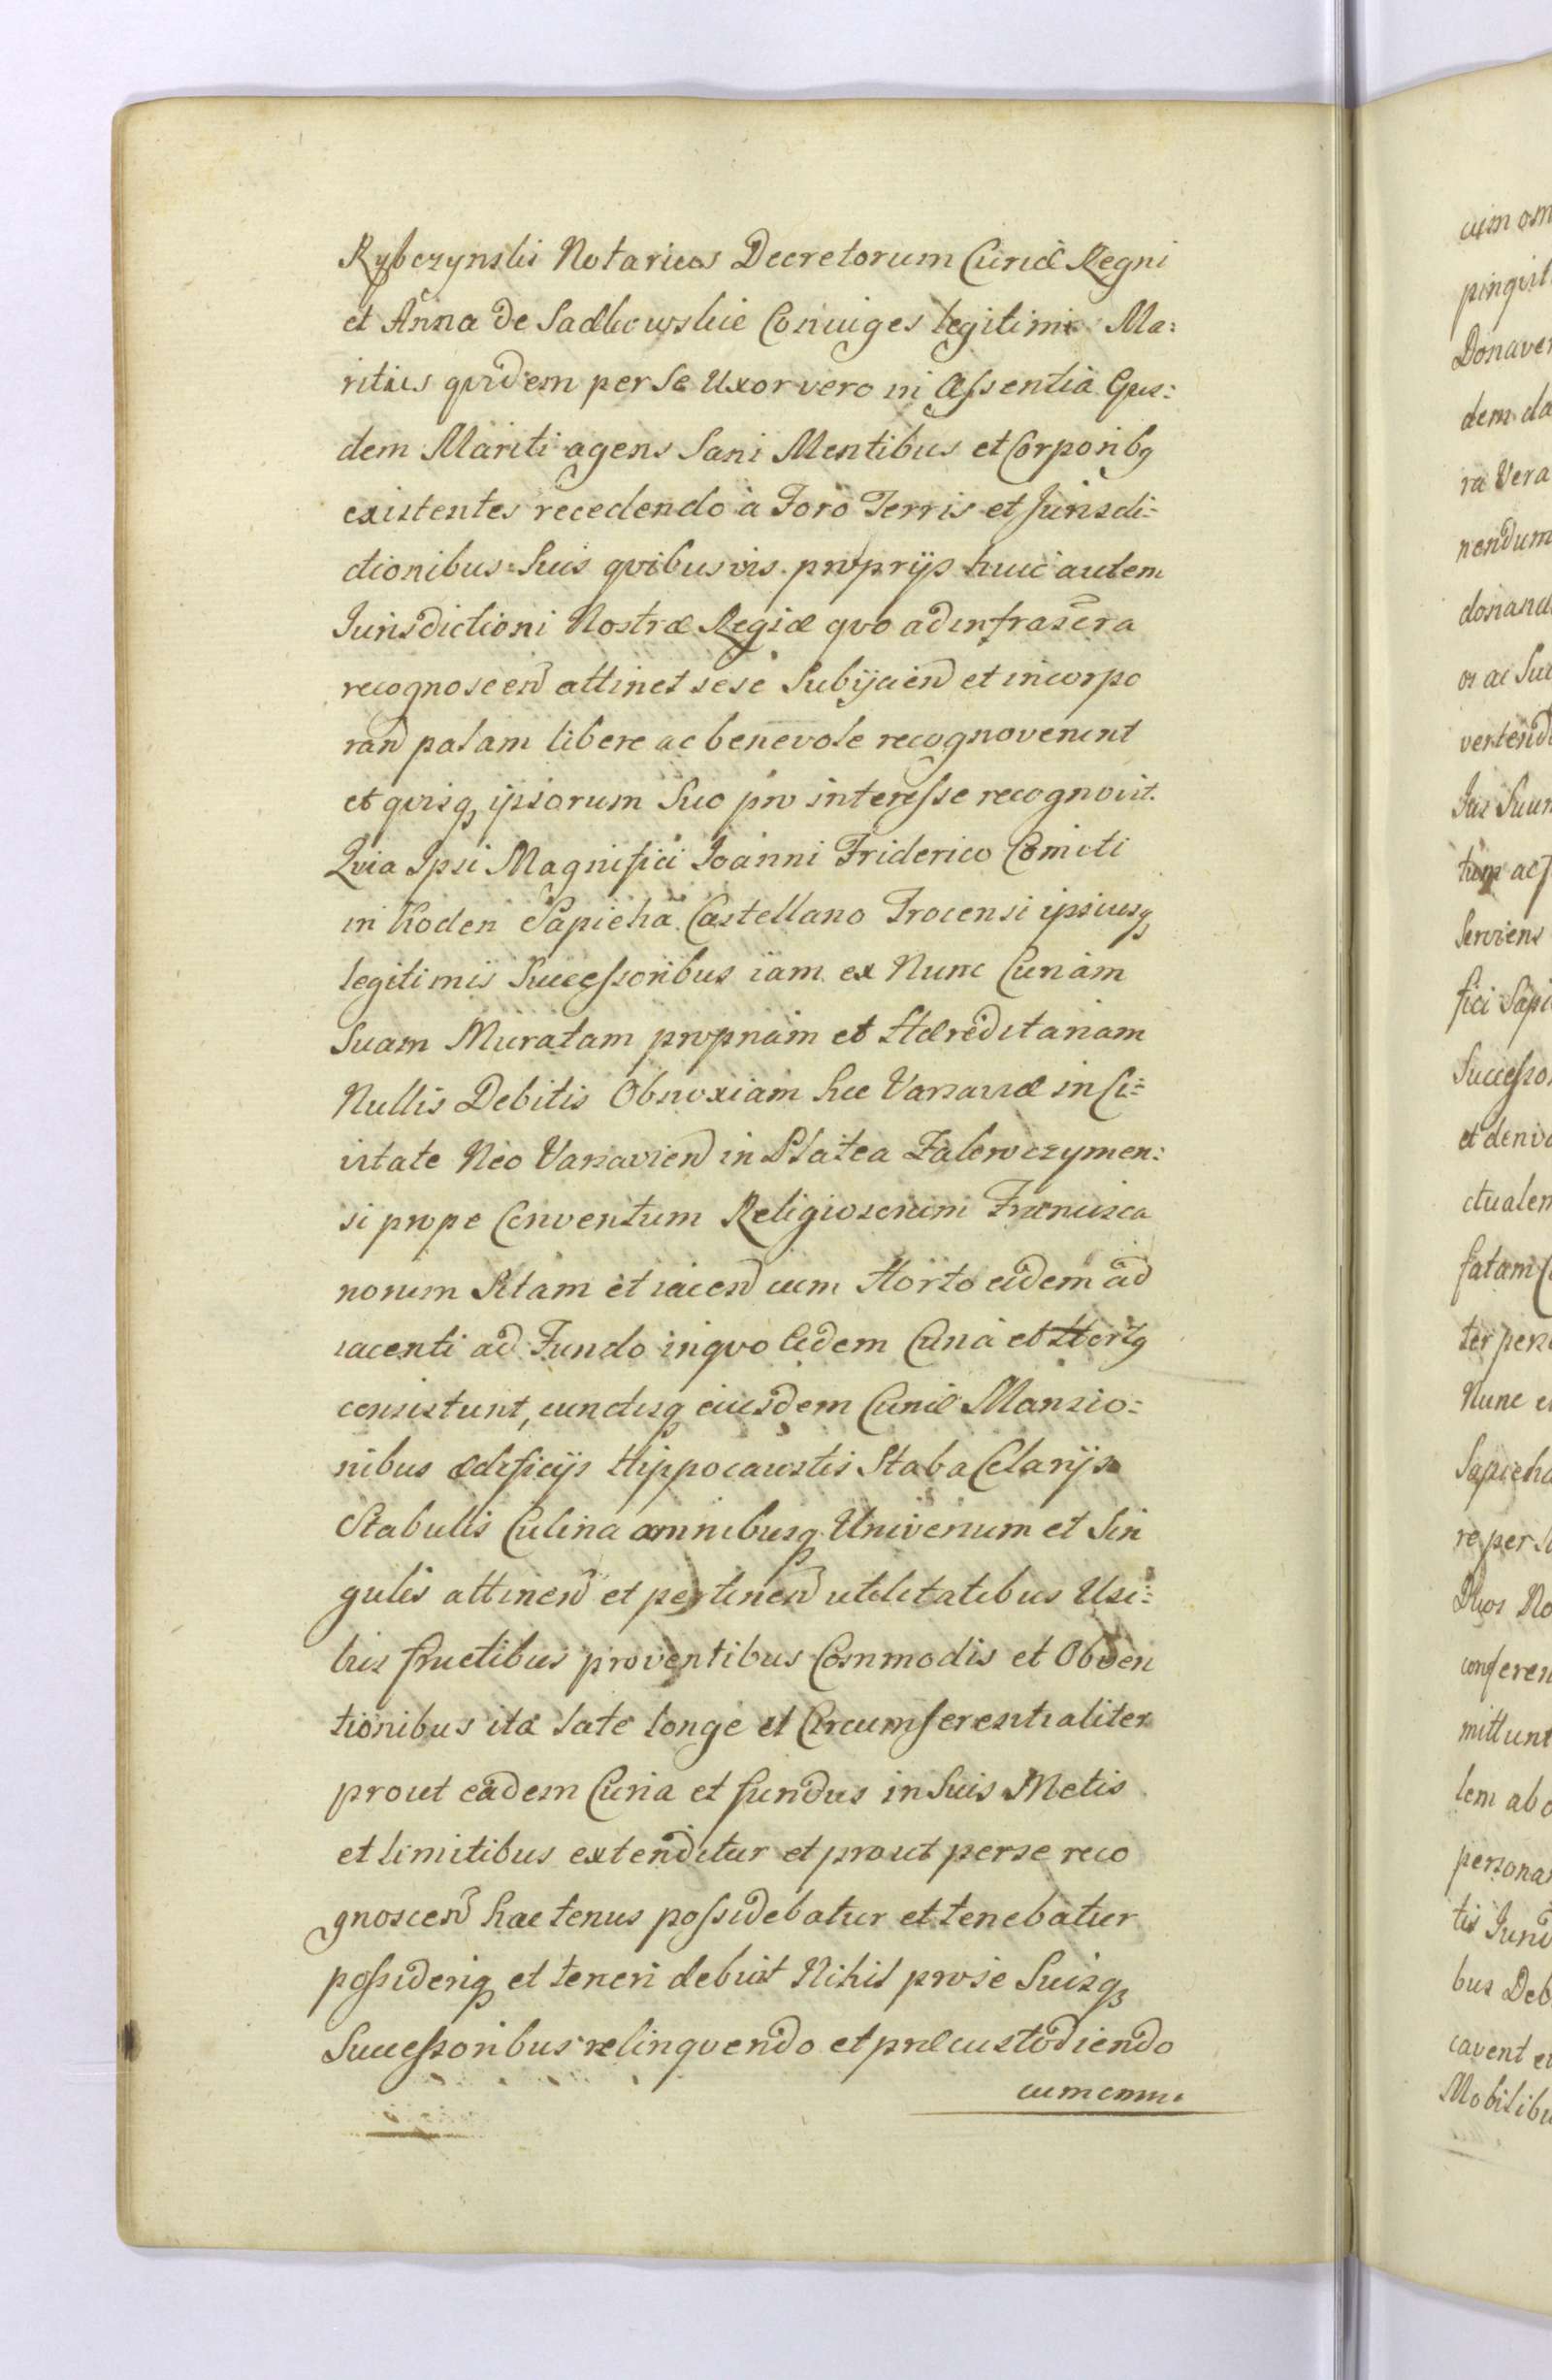 Rybczynski Notarius Decretorum Curiæ Regni
et Anna de Sadkowskie Coniuges legitimi Ma:
ritus qvidem per Se Uxor vero in Assentia Ejus:
dem Mariti agens Sani Mentibus et Corporibq
existentes recedendo à Foro Terris et Jurisdi=
ctionibus Suis qvibusvis proprijs huic autem
Jurisdictioni Nostræ Regiæ qvo ad infrascra
recognoscend attinet sese Subijciend et incorpo
rand palam libere ac benevole recognoverunt
et qvisq ipsorum Suo pro interesse recognovit.
Qvia Ipsi Magnifici Joanni Friderico Comiti
in Koden Sapieha Castellano Trocensi ipsiusq
legitimis Successoribus iam ex Nunc Curiam
Suam Muratam propriam et Hæreditariam
Nullis Debitis Obnoxiam hic Varsaviæ in Ci=
vitate Neo Varsaviend in Platea Zakroczymen:
si prope Conventum Religiosorum Francisca
norum Sitam et iacend cum Horto eidem ad
iacenti ac Fundo in qvo Eedem Curia et Hortq
consistunt, cunctisq eiusdem Curiæ Mansio=
nibus ædificijs Hippocaustis Staba Celarijs
Stabulis Culina omnibusq Universum et Sin
gulis attinend et pertinend utilitatibus Usi=
bus fructibus proventibus Commodis et Obven
tionibus ita late longe et Circumferentialiter
prout eadem Curia et fundus in Suis Metis
et limitibus extenditur et prout per se reco
gnoscend hactenus possidebatur et tenebatur
possideriq et teneri debuit Nihil pro se Suisq
Successoribus relinqvendo et præcustodiendo
cum omni
cum om
pingvil
Donaver
dem da
ra Vera
nendum
donand
or ac Suc
vertend
Jus Suum
tum ac
Serviens
fici Sapi
Successo
et deriva
ctualem
fatam C
ter pers
Nunc e
Sapieha
re per
Duos No
conferen
mittunt
lem ab
persona
tis Jund
bus Deb
cavent e
Mobilibu